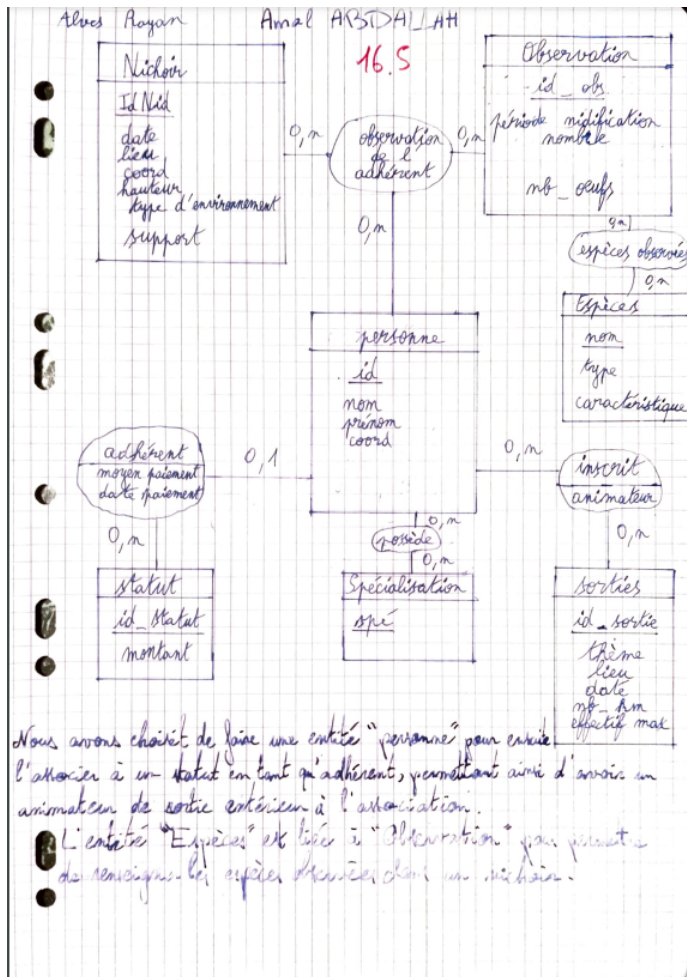 Alves Rayan
Amal ABDALLAH
16.5
Nichoir
Id Nid
date
lieu
coord
hauteur
type d'environnement
support
0,n
observation
de l'
adhérent
0,n
0,n
Observation
id_obs
période nidification
nombre
nb_oeufs
0,n
espèces observées
0,n
Espèces
nom
type
caractéristique
personne
id
nom
prénom
coord
0,1
adhérent
moyen paiement
date paiement
0,n
statut
id_statut
montant
0,n
possède
0,n
Spécialisation
spé
0,n
inscrit
animateur
0,n
sorties
id_sortie
thème
lieu
date
nb_hm
effectif max
Nous avons choisit de faire une entité "personne" pour ensuite
l'associer à un statut en tant qu'adhérent, permettant ainsi d'avoir un
animateur de sortie extérieur à l'association.
L'entité "Espèces" est liée à "Observation" pour permettre
de renseigner les espèces observées dans un nichoir.